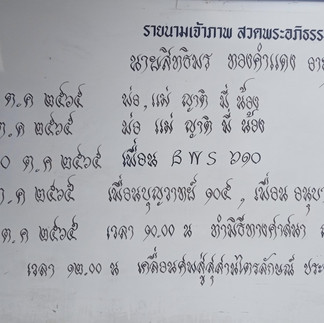 รายนามเจ้าภาพ สวดพระอภิธรร
นายสิทธิพร ทองคำแดง อาย
ต.ค ๒๕๖๕ พ่อ, แม่ ญาติ พี่ น้อง
ต.ค ๒๕๖๕ พ่อ แม่ ญาติ พี่ น้อง
๐ ต.ค ๒๕๖๕ เพื่อน BWS ๖๑๐
ต.ค ๒๕๖๕ เพื่อนบุญวาทย์ ๑๐๕ , เพื่อน อนุบา
ต.ค ๒๕๖๕ เวลา ๑๐.๐๐ น ทำพิธีทางศาสนา
เวลา ๑๒.๐๐ น เคลื่อนศพสู่สุสานไตรลักษณ์ ประ